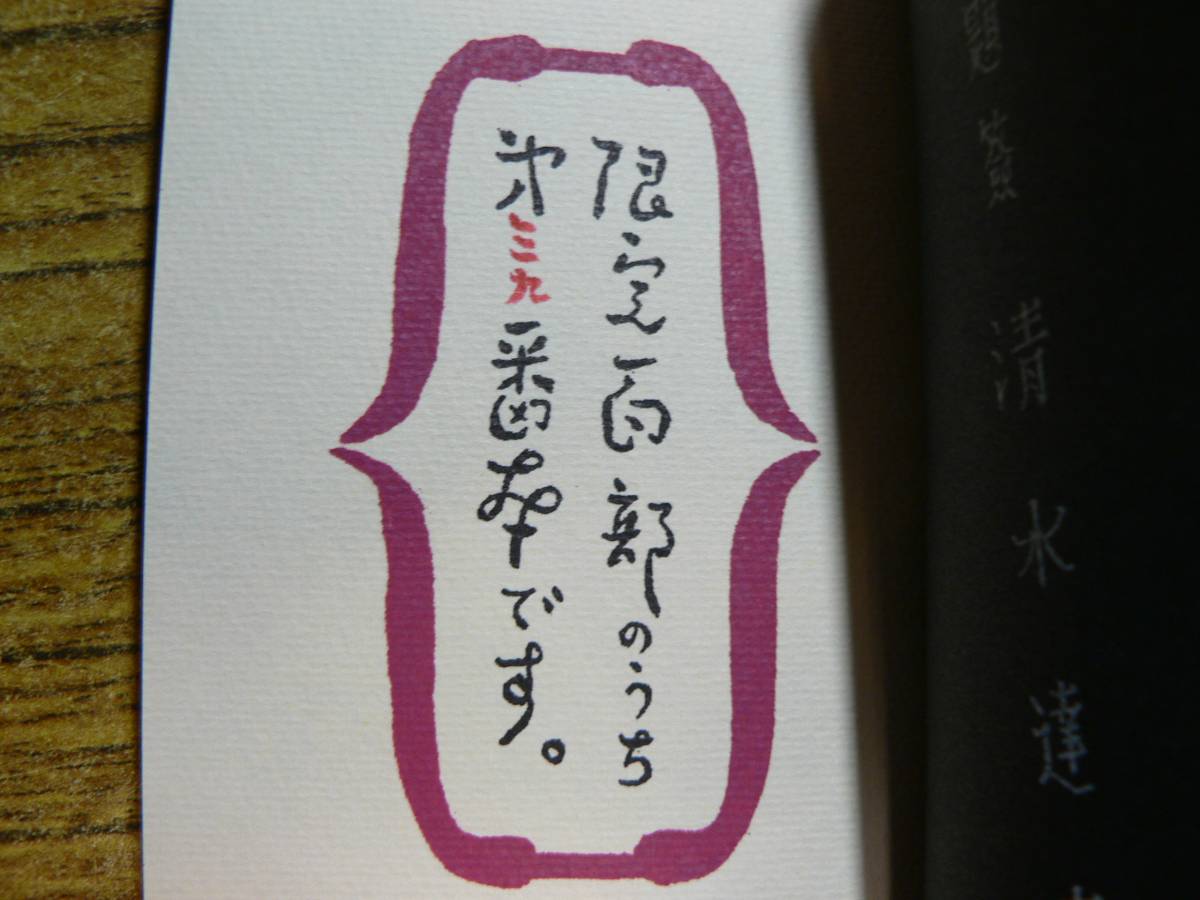 清水達
限定百部のうち
第三九番本です。